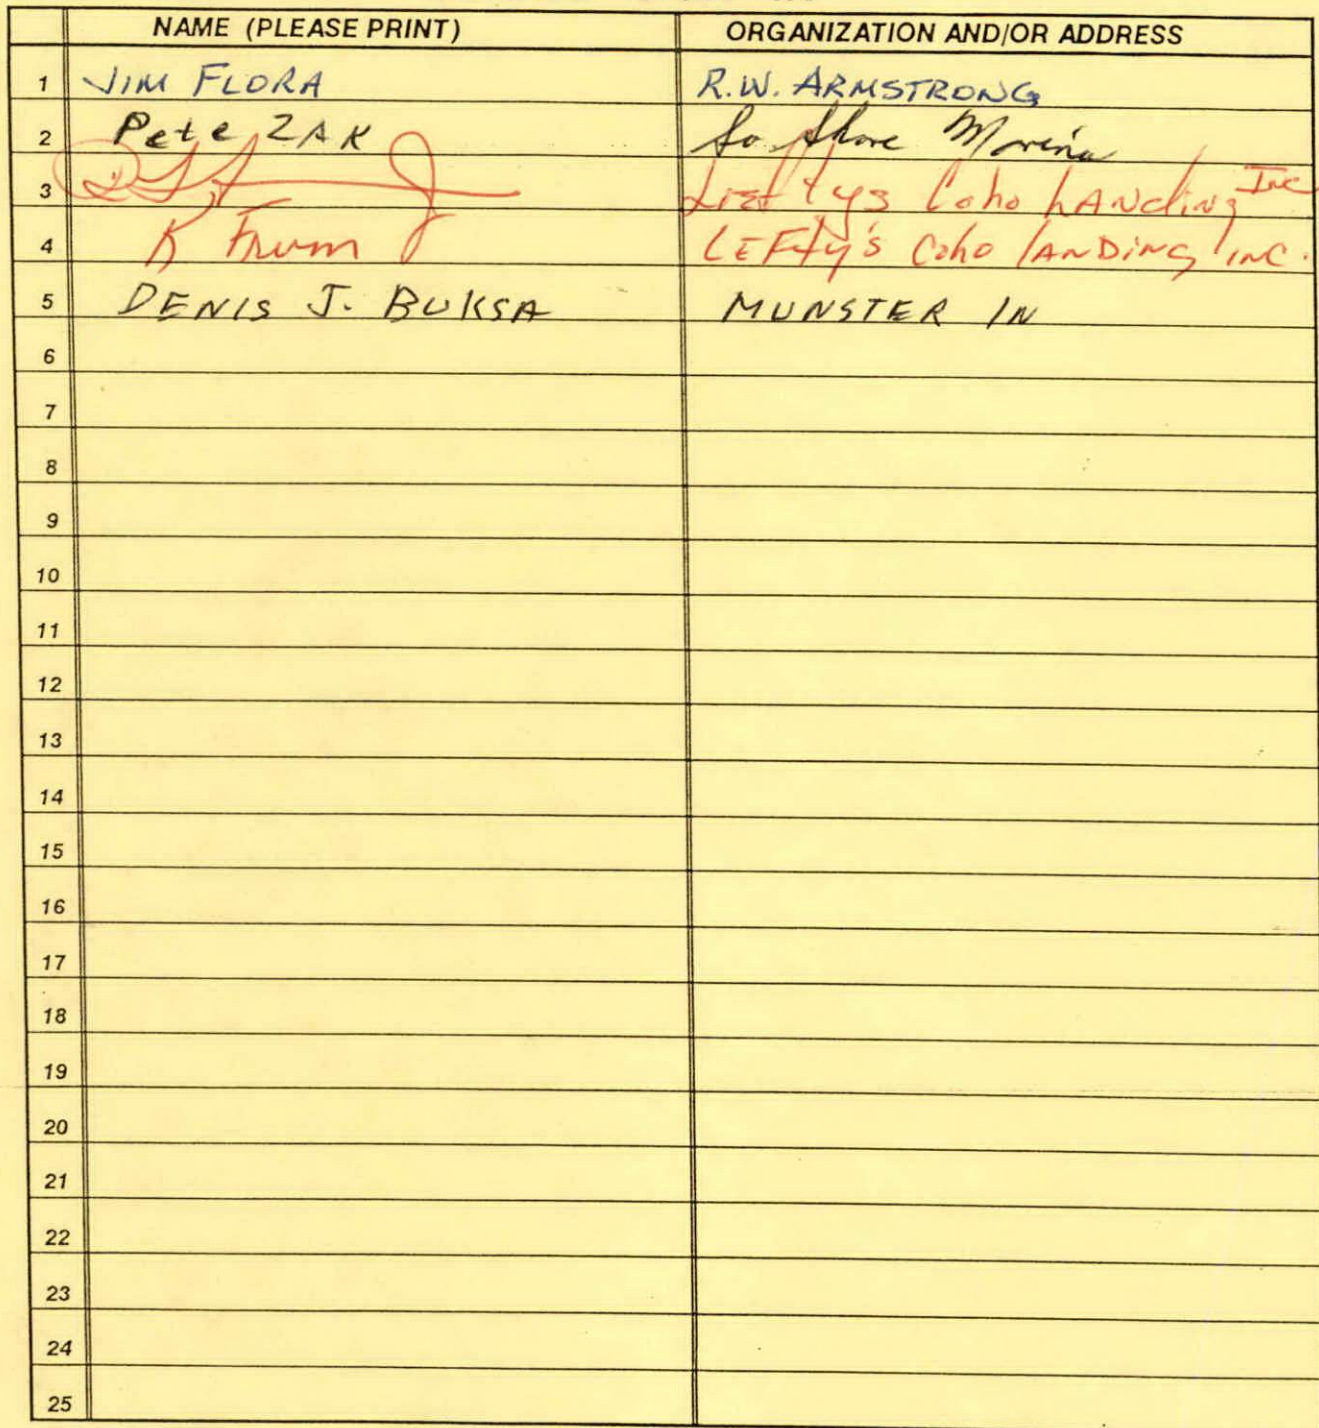 NAME (PLEASE PRINT) ORGANIZATION AND/OR ADDRESS
1 JIM FLORA R.W. ARMSTRONG
2 Pete ZAK So Shore Marina
3 Lefty's Coho LANding Inc
4 K LEFty's Coho LANDING INC.
5 DENIS J. BUKSA MUNSTER IN
6
7
8
9
10
11
12
13
14
15
16
17
18
19
20
21
22
23
24
25